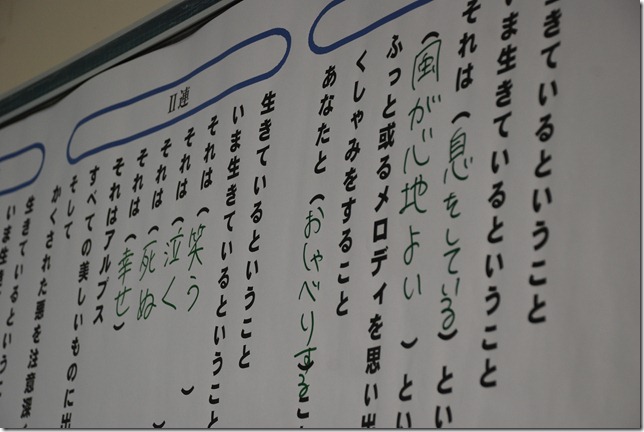 きているということ
ま生きているということ
それは（息をしている）とい
（風が心地よい　）とい
ふっと或るメロディを思い出
くしゃみをすること
あなたと（おしゃべりする）こ
Ⅱ連
生きているということ
いま生きているということ
それは（笑う　）
それは（泣く　）
それは（死ぬ
それは（幸せ）
それはアルプス
すべての美しいものに出
そして
かくされた悪を注意深
生きているということ
いま生